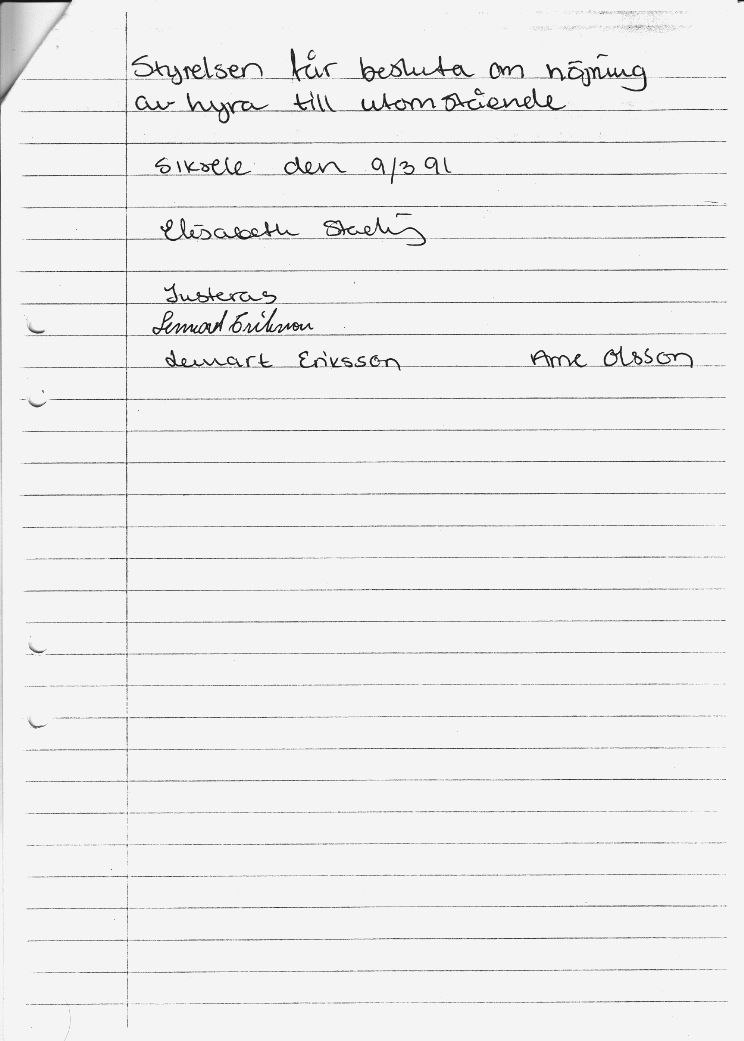 Styrelsen får besluta om höjning
av hyra till utomstående
Siksele den 9/3 91
Elisabeth Staeling
Justeras
Lennart Eriksson
Lennart Eriksson Arne Olsson